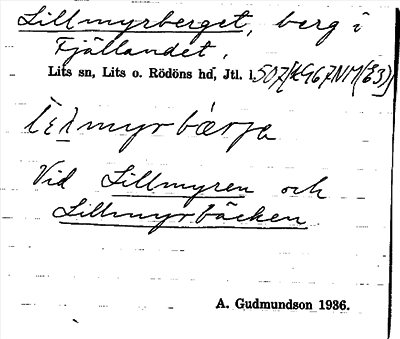 Lillmyrberget, berg i
Fjällandet,
Lits sn, Lits o. Rödöns hd, Jtl. l.
Vid Lillmyren och
Lillmyrbäcken
A. Gudmundson 1936.